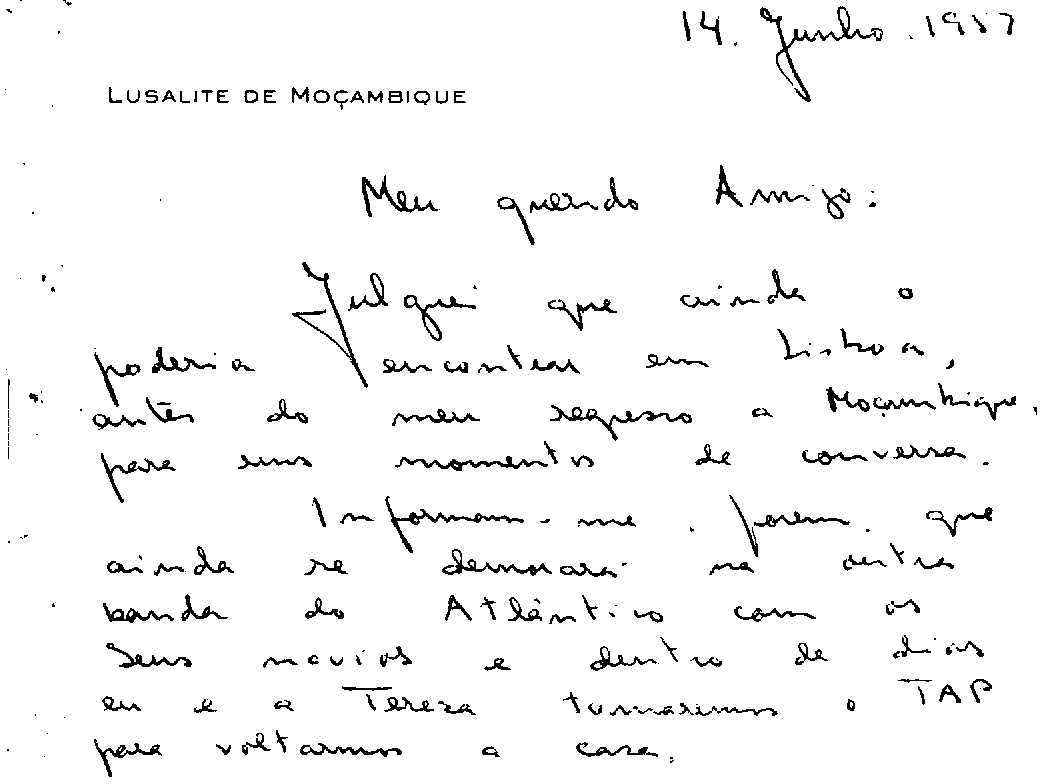 14. Junho. 1957
LUSALITE DE MOÇAMBIQUE
Meu querido Amigo:
Julguei que ainda o
poderia encontrar em Lisboa,
antes do meu regresso a Moçambique,
para uns momentos de conversa.
Informam-me, porem, que
ainda se demorará na outra
banda do Atlântico com os
Seus navios e dentro de dias
eu e a Tereza tomaremos o TAP
para voltarmos a casa.